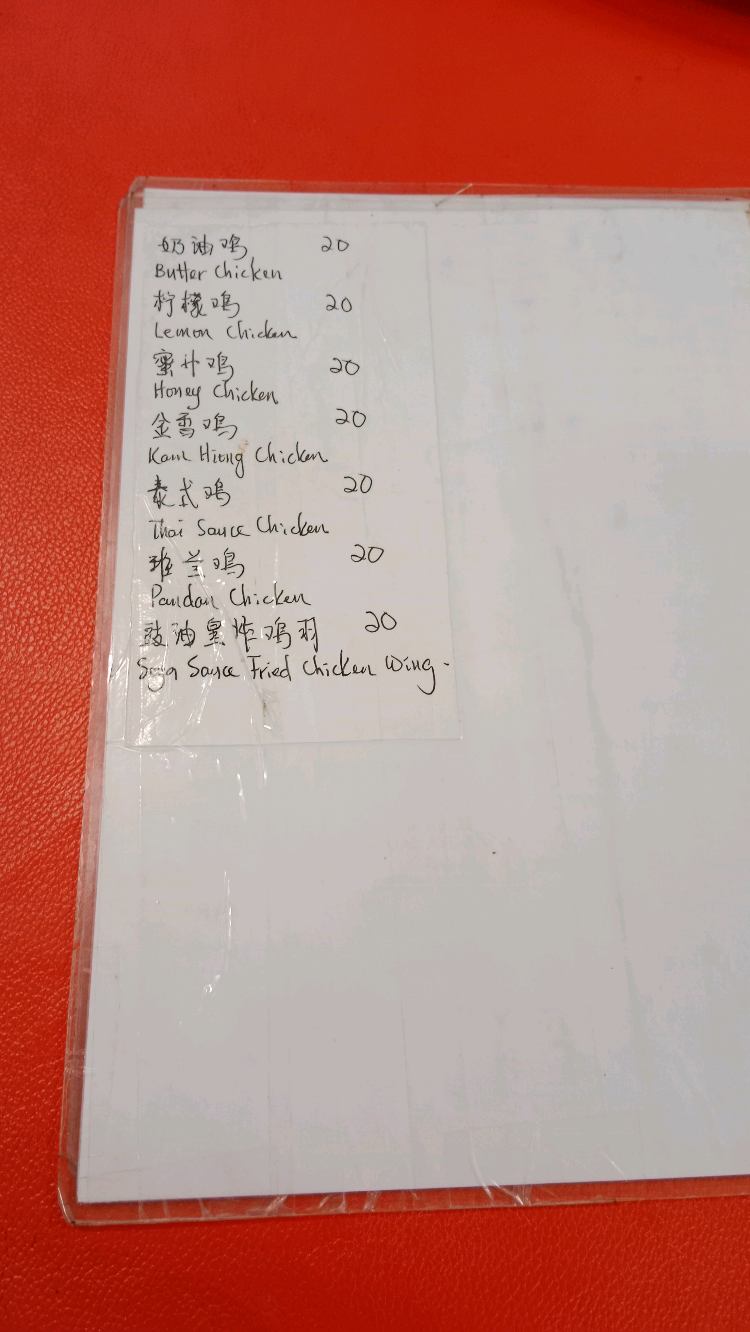 奶油鸡 20
Butter Chicken
柠檬鸡 20
Lemon Chicken
蜜汁鸡 20
Honey Chicken
金香鸡 20
Kam Hiong Chicken
泰式鸡 20
Thai Sauce Chicken
班兰鸡 20
Pandan Chicken
豉油皇炸鸡羽 20
Soya Sauce Fried Chicken Wing.